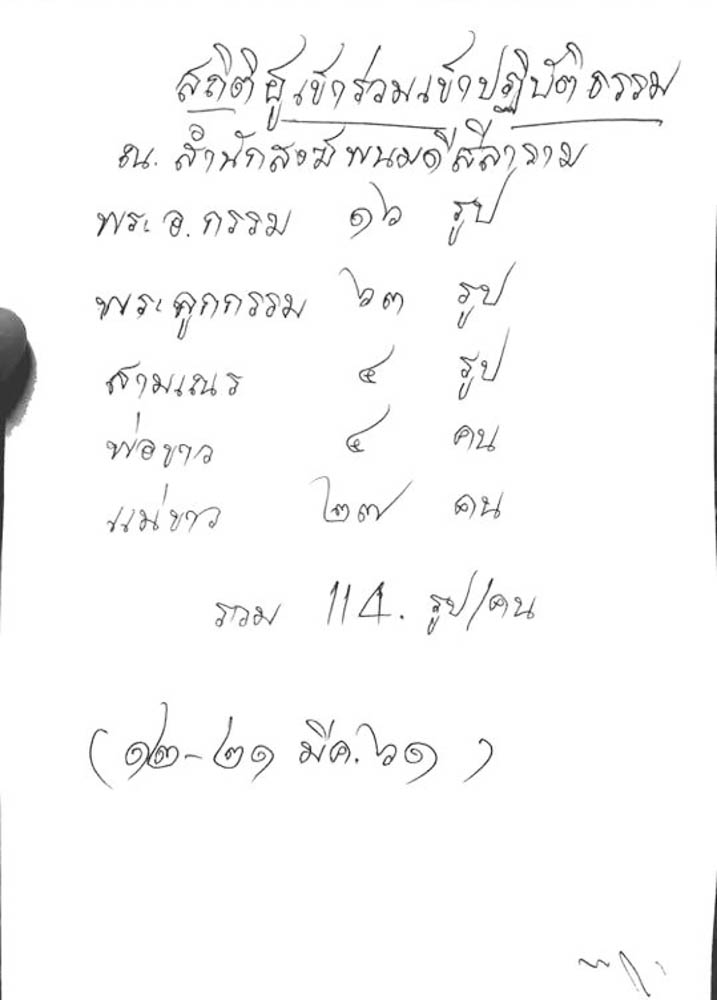 สถิติผู้เข้าร่วมเข้าปฏิบัติธรรม
ณ. สำนักสงฆ์พนมดีสีลาราม
พระ อ. กรรม ๑๖ รูป
พระลูกกรรม ๖๓ รูป
สามเณร ๔ รูป
พ่อขาว ๔ คน
แม่ขาว ๒๗ คน
รวม 114. รูป/คน
(๑๒-๒๑ มีค.๖๑)